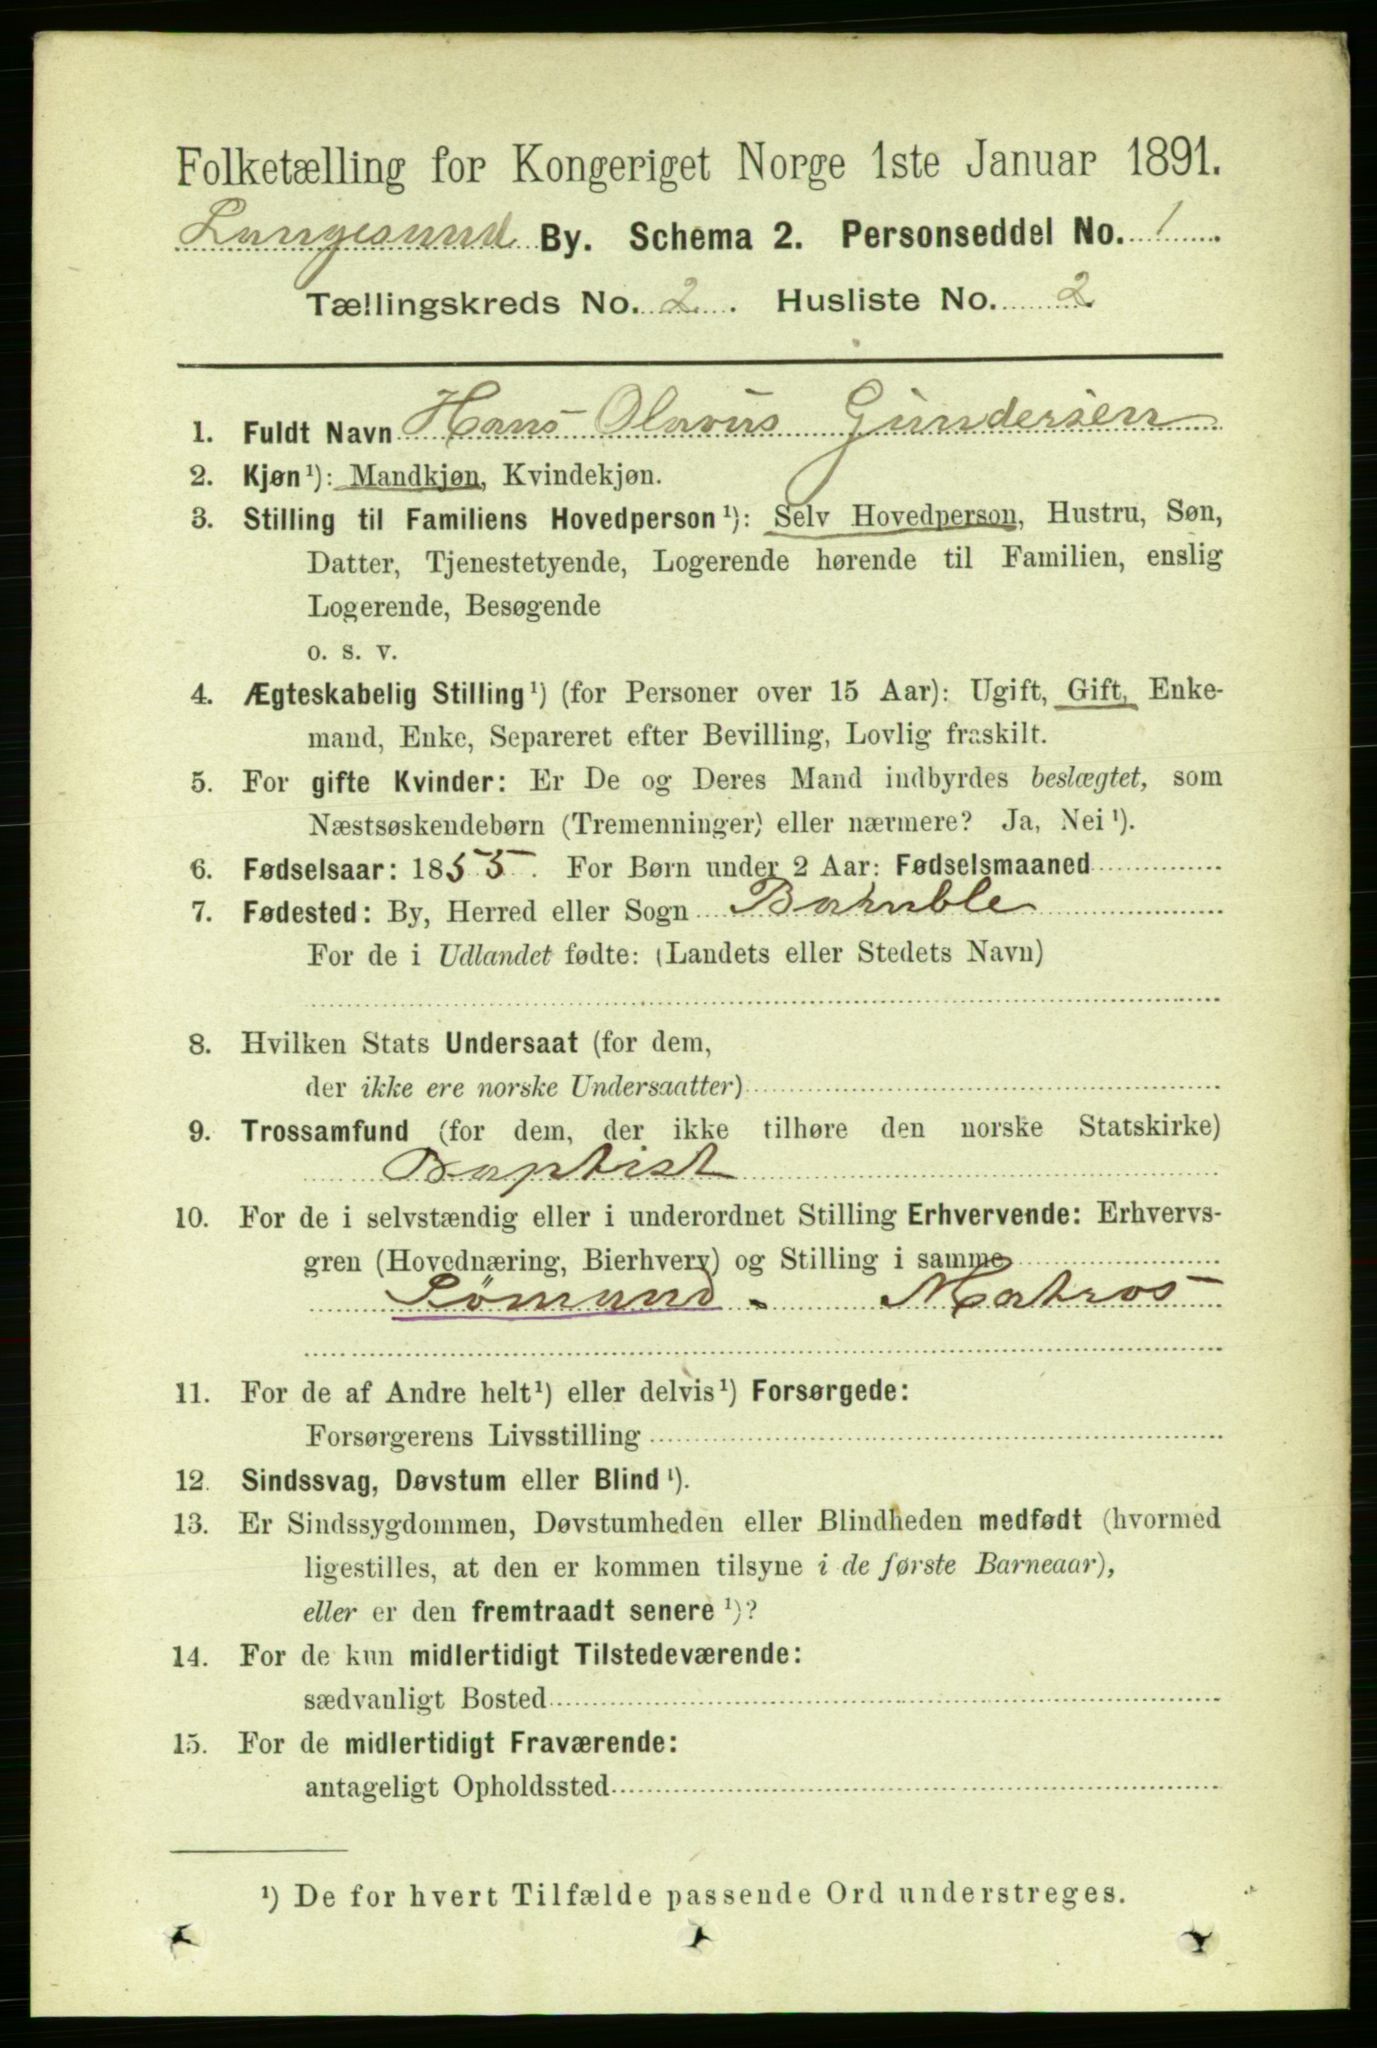 Folketælling for Kongeriget Norge 1ste Januar 1891.
Langesund By. Schema 2. Personseddel No. 1
Tællingskreds No. 2. Husliste No. 2
1. Fuldt Navn Hans Olavus Gundersen
2. Kjøn¹): Mandkjøn, Kvindekjøn.
3. Stilling til Familiens Hovedperson¹): Selv Hovedperson, Hustru, Søn,
Datter, Tjenestetyende, Logerende hørende til Familien, enslig
Logerende, Besøgende
o. s. v.
4. Ægteskabelig Stilling¹) (for Personer over 15 Aar): Ugift, Gift, Enke-
mand, Enke, Separeret efter Bevilling, Lovlig fraskilt.
5. For gifte Kvinder: Er De og Deres Mand indbyrdes beslægtet, som
Næstsøskendebørn (Tremenninger) eller nærmere? Ja, Nei¹).
6. Fødselsaar: 1855. For Børn under 2 Aar: Fødselsmaaned
7. Fødested: By, Herred eller Sogn Bamble
For de i Udlandet fødte: (Landets eller Stedets Navn)
8. Hvilken Stats Undersaat (for dem,
der ikke ere norske Undersaatter)
9. Trossamfund (for dem, der ikke tilhøre den norske Statskirke)
Baptist
10. For de i selvstændig eller i underordnet Stilling Erhvervende: Erhvervs-
gren (Hovednæring, Bierhverv) og Stilling i samme
Sömand - Matros
11. For de af Andre helt¹) eller delvis¹) Forsørgede:
Forsørgerens Livsstilling
12. Sindssvag, Døvstum eller Blind¹).
13. Er Sindssygdommen, Døvstumheden eller Blindheden medfødt (hvormed
ligestilles, at den er kommen tilsyne i de første Barneaar),
eller er den fremtraadt senere¹)?
14. For de kun midlertidigt Tilstedeværende:
sædvanligt Bosted
15. For de midlertidigt Fraværende:
antageligt Opholdssted
¹) De for hvert Tilfælde passende Ord understreges.